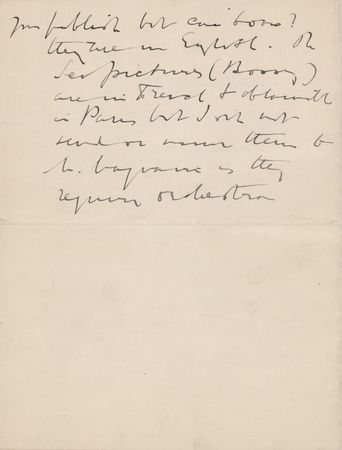 you publish but can have?
They are in English. The
Sea pictures (Boosey)
are in French & obtainable
in Paris but I do not
send or name them to
M. as they
require orchestra